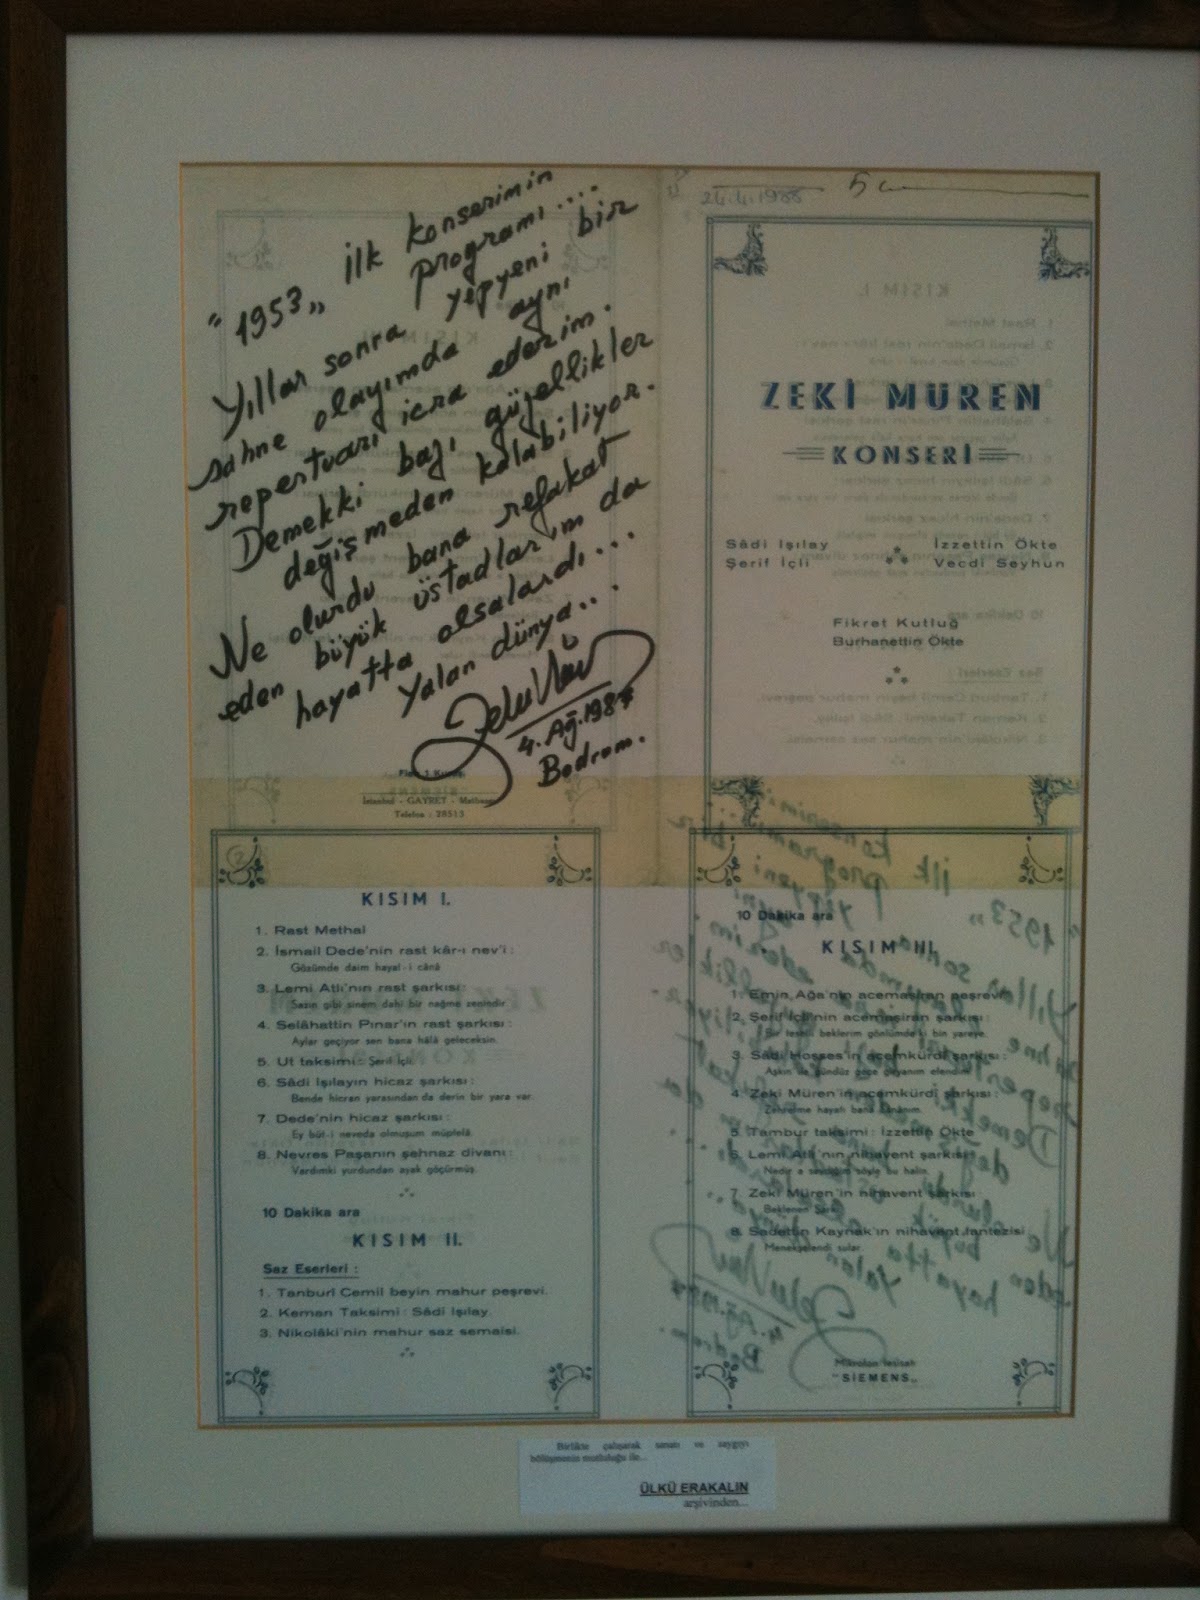 "1953„ ilk konserimin
programı....
Yıllar sonra yepyeni bir
sahne olayımda aynı
repertuarı icra ederim.
Demekki bazı güzellikler
değişmeden kalabiliyor.
Ne olurdu bana refakat
eden büyük üstadlar'ım da
hayatta olsalardı...
Yalan dünya...
4. Ağ. 1987
Bodrum.
İstanbul - GAYRET - Matbaası
Telefon : 28513
ZEKİ MÜREN
KONSERİ
Sâdi Işılay
Şerif İçli
İzzettin Ökte
Vecdi Seyhun
Fikret Kutluğ
Burhanettin Ökte
KISIM I.
1. Rast Methal
2. İsmail Dede'nin rast kâr-ı nev'i :
Gözümde daim hayal-i cânâ
3. Lemi Atlı'nın rast şarkısı :
Sazın gibi sinem dahi bir nağme zenindir
4. Selâhattin Pınar'ın rast şarkısı :
Aylar geçiyor sen bana hâlâ geleceksin.
5. Ut taksimi : Şerif İçli.
6. Sâdi Işılayın hicaz şarkısı :
Bende hicran yarasından da derin bir yara var.
7. Dede'nin hicaz şarkısı :
Ey büt-i neveda olmuşum müptelâ
8. Nevres Paşanın şehnaz divanı :
Vardımki yurdundan ayak göçürmüş.
10 Dakika ara
KISIM II.
Saz Eserleri :
1. Tanburî Cemil beyin mahur peşrevi.
2. Keman Taksimi : Sâdi Işılay.
3. Nikolâki'nin mahur saz semaisi.
10 Dakika ara
KISIM III.
1. Emin Ağa'nın acemaşiran peşrevi
2. Şerif İçli'nin acemaşiran şarkısı :
Bir teselli beklerim gönlümdeki bin yareye.
3. Sâdi Hosses'in acemkürdi şarkısı :
Aşkın ile gündüz gece giryanım efendim
4. Zeki Müren'in acemkürdi şarkısı :
Zehretme hayatı bana cânânım.
5. Tambur taksimi : İzzettin Ökte
6. Lemi Atlı'nın nihavent şarkısı :
Nedir a sevdiğim söyle bu halin.
7. Zeki Müren'in nihavent şarkısı
Beklenen Şarkı
8. Sadettin Kaynak'ın nihavent fantezisi
Menekşelendi sular.
Mikrofon tesisatı
"SİEMENS„
Birlikte çalışarak sanatı ve saygıyı
bölüşmenin mutluluğu ile...
ÜLKÜ ERAKALIN
arşivinden...